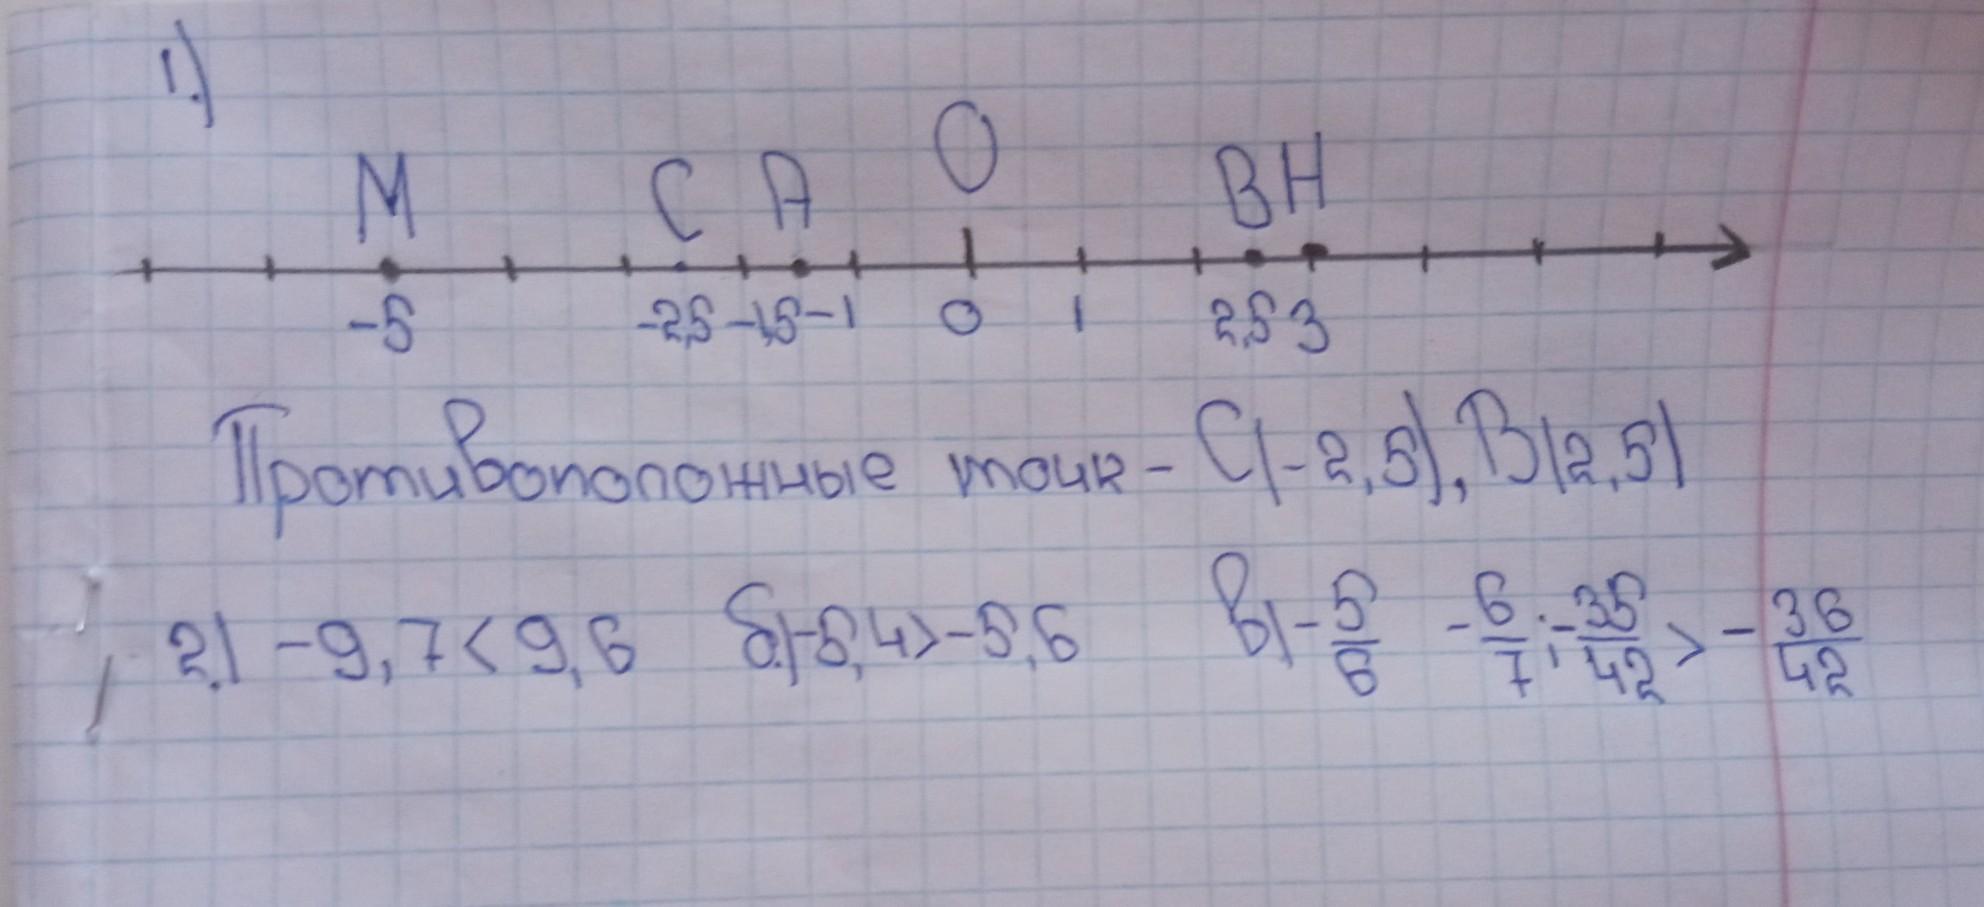 1.)
М С А О В Н
-5 -2,5 -1,5 -1 0 1 2,5 3
Противоположные точк - С(-2,5), В(2,5)
2.) -9,7 < 9,6 б.)-5,4>-5,6 в)-5/6 -6/7; -35/42 > -36/42